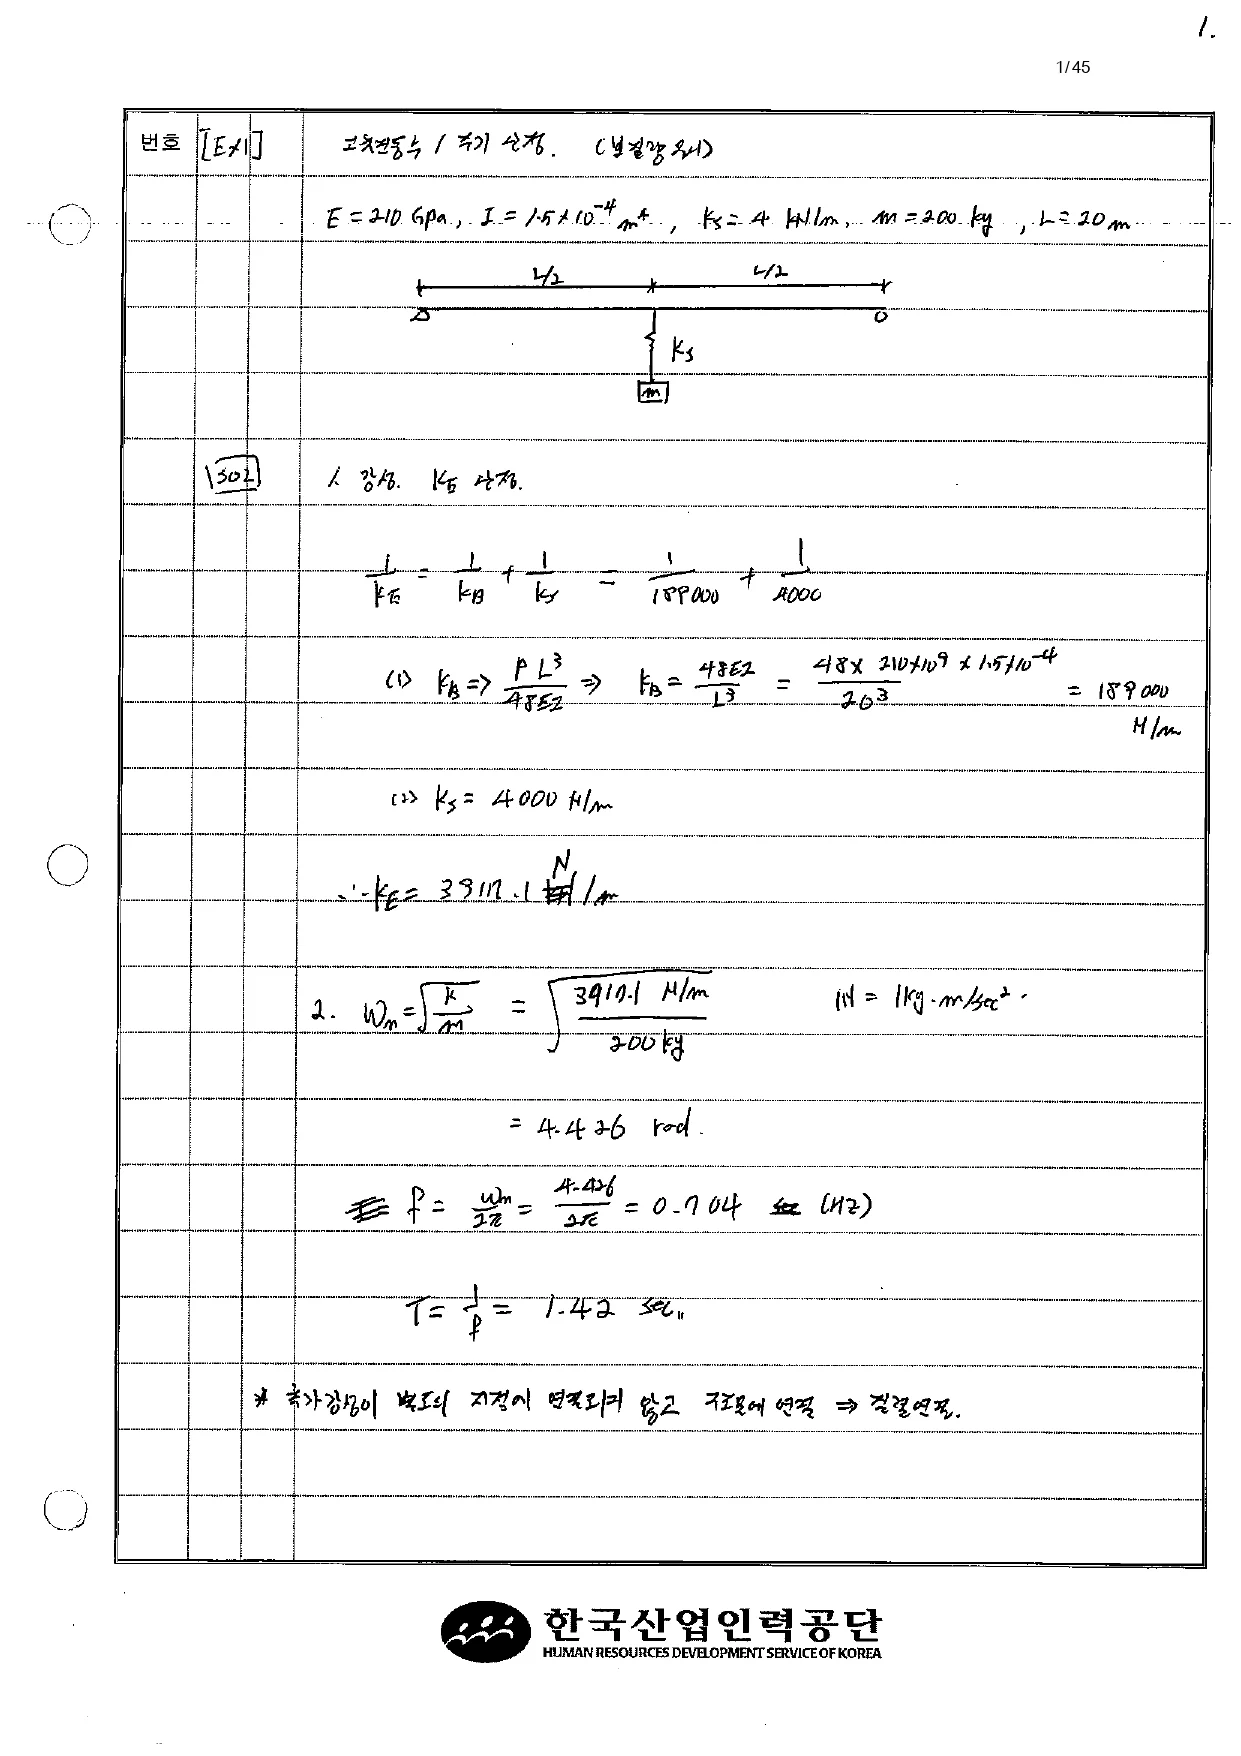 1.
1/45
번호 [EX1] 고유진동수 / 주기 산정. (보질량 무시)
E = 210 Gpa, I = 1.5×10⁻⁴ m⁴, Ks = 4 kN/m, m = 200 kg, L = 20 m
L/2 L/2
Ks
m
SOL 1. 강성 KE 산정.
1/KE = 1/KB + 1/Ks = 1/189000 + 1/4000
(1) KB => PL³/48EI => KB = 48EI/L³ = 48× 210×10⁹ × 1.5×10⁻⁴/20³ = 189000 N/m
(2) Ks = 4000 N/m
∴ KE = 3917.1 N/m
2. Wn = √(K/m) = √(3917.1 N/m / 200 kg) 1N = 1kg·m/sec².
= 4.426 rad.
f = Wn/2π = 4.426/2π = 0.704 (Hz)
T = 1/f = 1.42 sec
* 추가강성이 별도의 지점에 연결되지 않고 구조물에 연결 ⇒ 직렬연결.
한국산업인력공단
HUMAN RESOURCES DEVELOPMENT SERVICE OF KOREA